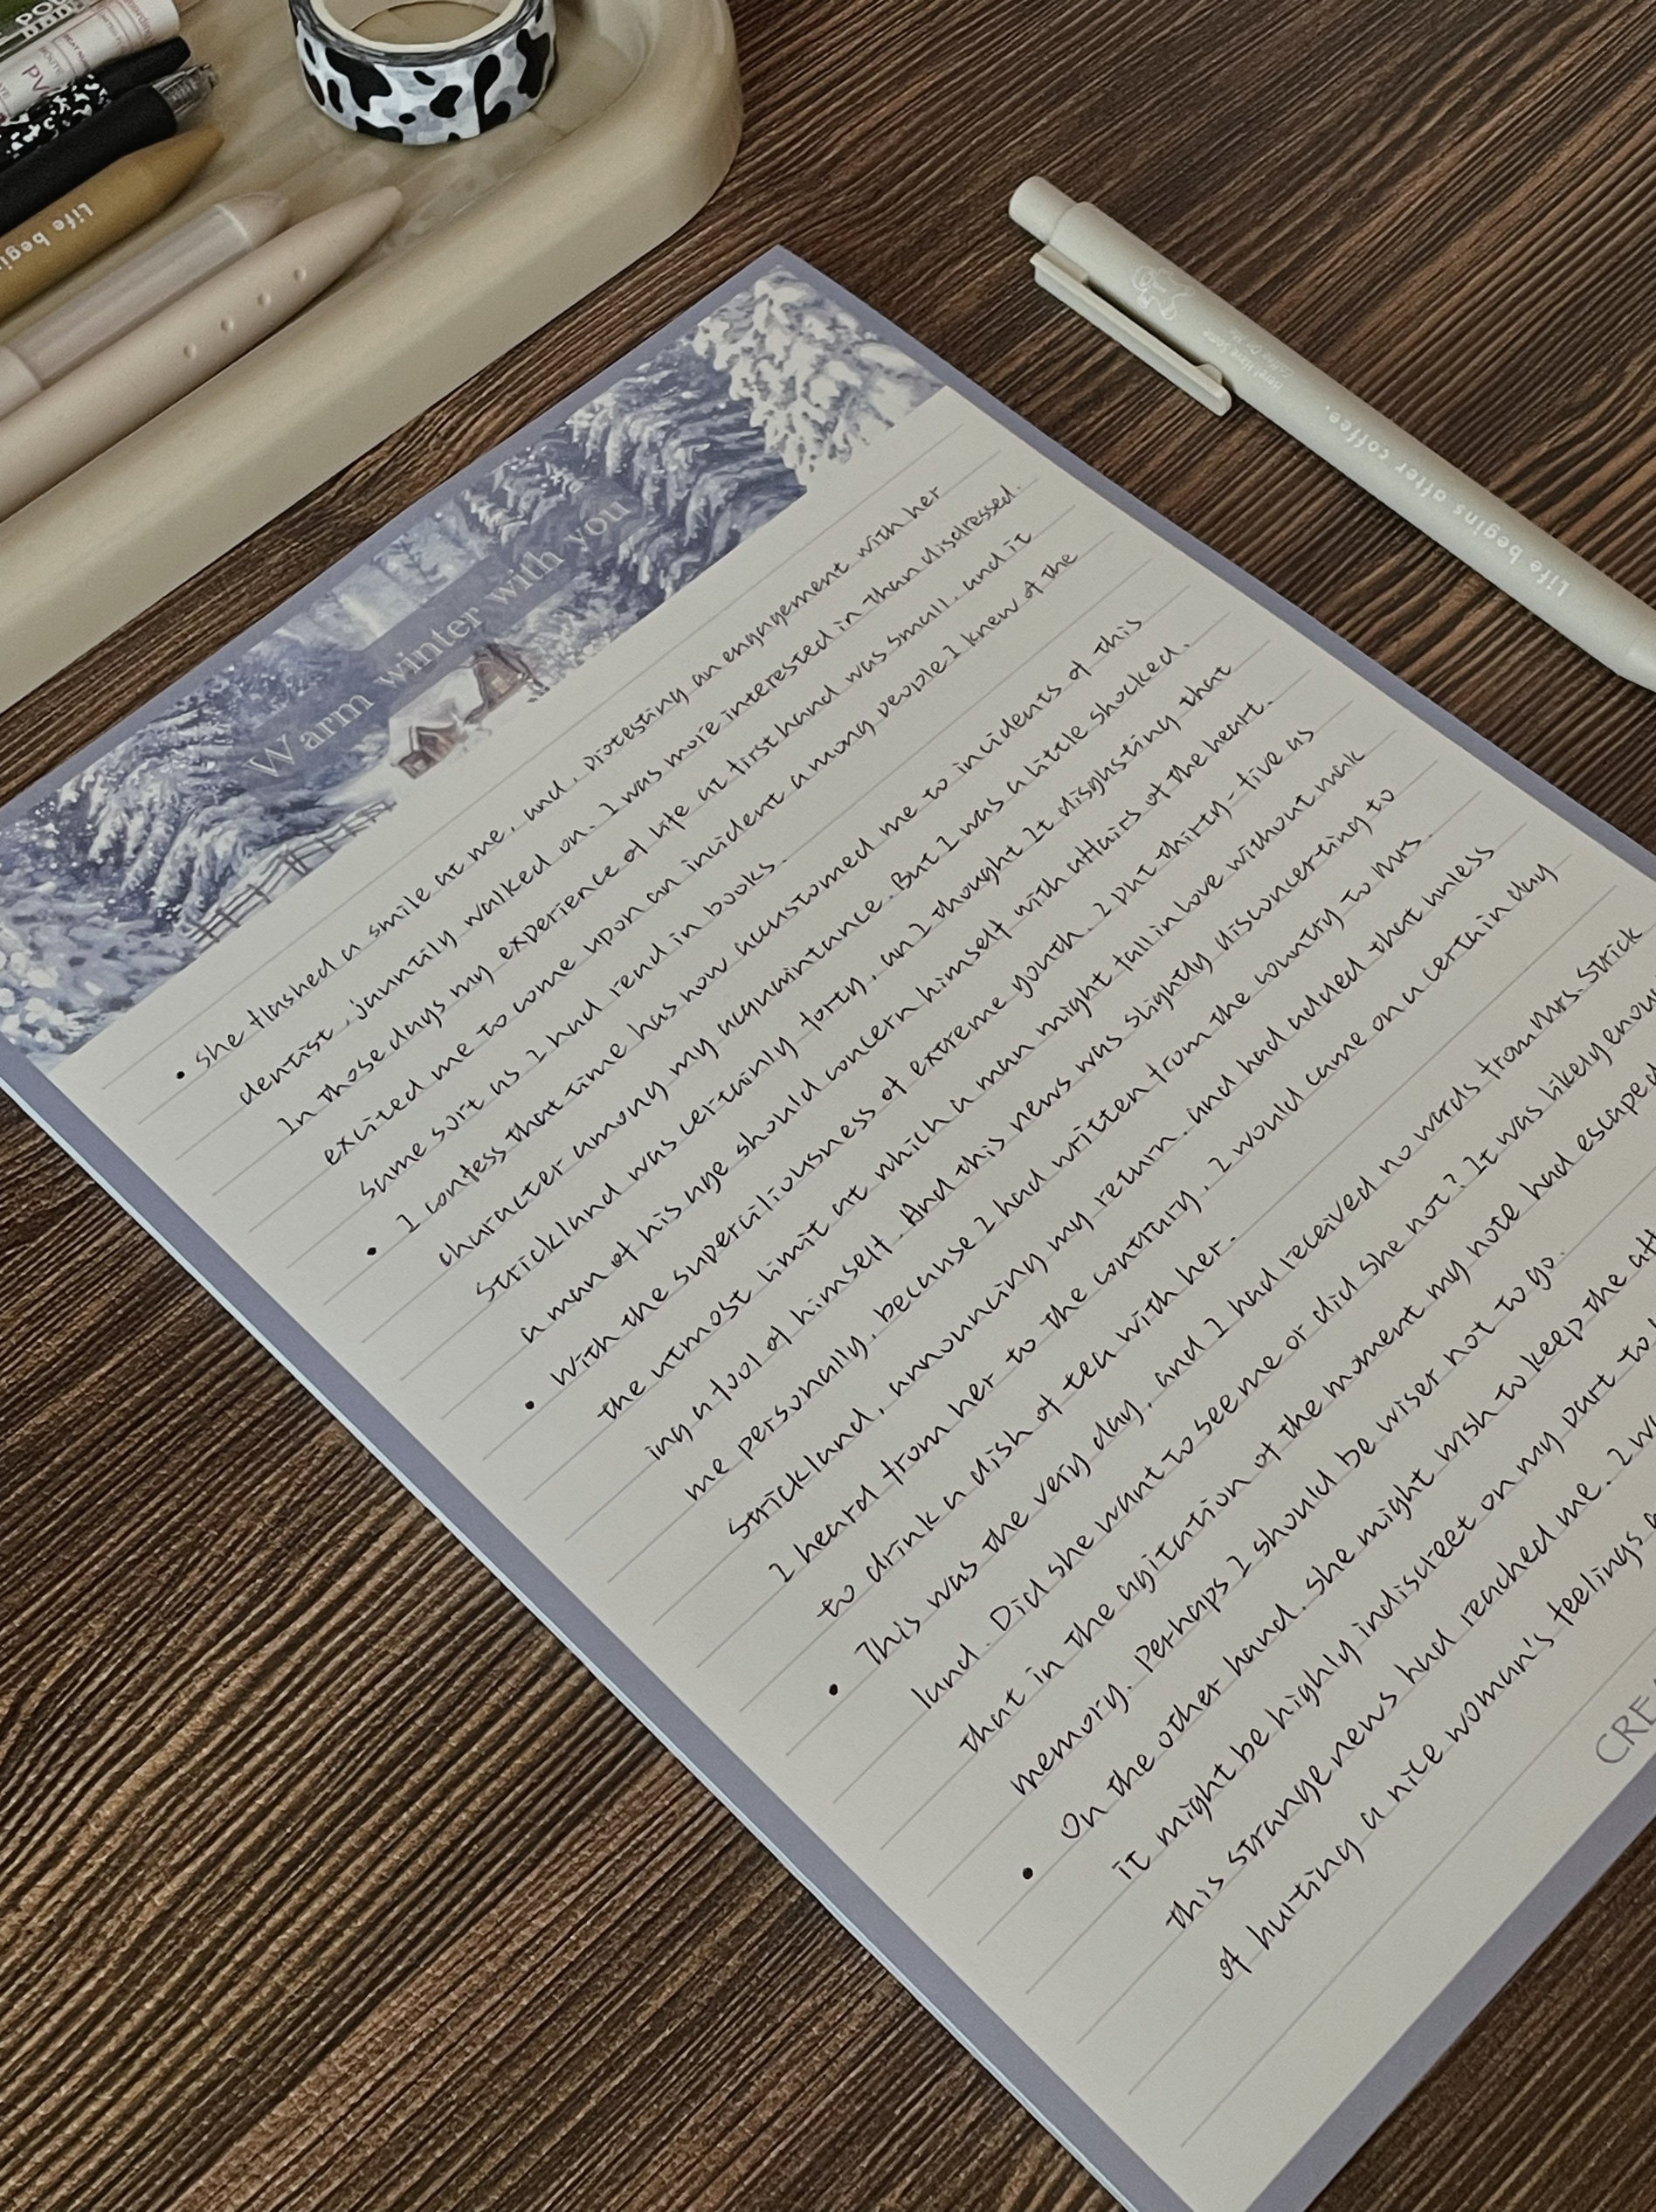 Life begin
Life begins after coffee.
Warm winter with you
• She flashed a smile at me, and, protesting an engagement with her
dentist, jauntily walked on. I was more interested in than disdressed.
In those days my experience of life at first hand was small, and it
excited me to come upon an incident among people I knew of the
same sort as I had read in books.
• I confess that time has now accustomed me to incidents of this
character among my acquaintance. But I was a little shocked.
Strickland was certainly forty, an I thought It disghsting that
a man of his age should concern himself with affairs of the heart.
• With the superciliousness of extreme youth, I put thirty-five as
the utmost limit at which a man might fall in love without mak
ing a fool of himself. And this news was slightly disconcerting to
me personally, because I had written from the country to Mrs.
Strickland, announcing my return, and had added that unless
I heard from her to the contrary, I would came on a certain day
to drink a dish of tea with her.
• This was the very day, and I had received no words from Mrs. Strick
land. Did she want to see me or did she not? It was likely enou
that in the agitation of the moment my note had escaped
memory. Perhaps I should be wiser not to go.
• On the other hand, she might wish to keep the aff
it might be highly indiscreet on my part to
this strange news had reached me. I w
of hurting a nice woman's feelings
CRE